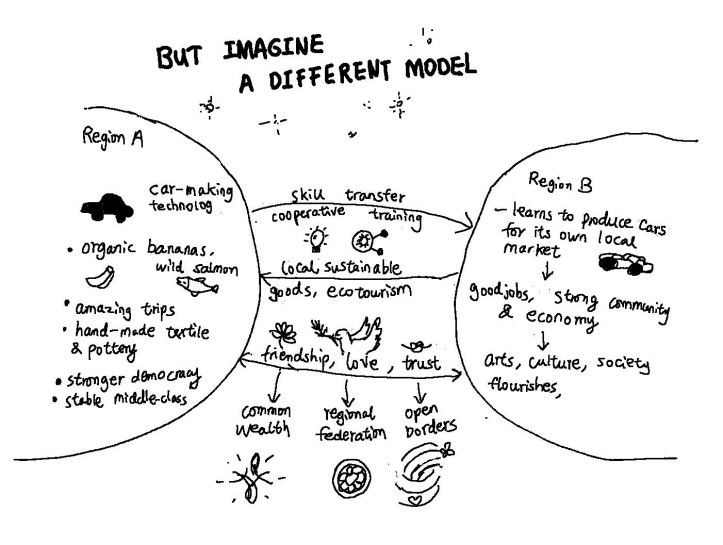 BUT IMAGINE
A DIFFERENT MODEL
Region A
car-making
technolog
• organic bananas,
wild salmon
• amazing trips
• hand-made textile
& pottery
• stronger democracy
• stable middle-class
skill transfer
cooperative training
local sustainable
goods, ecotourism
friendship, love, trust
common
wealth
regional
federation
open
borders
Region B
– learns to produce cars
for its own local
market
good jobs, strong community
& economy
arts, culture, society
flourishes,